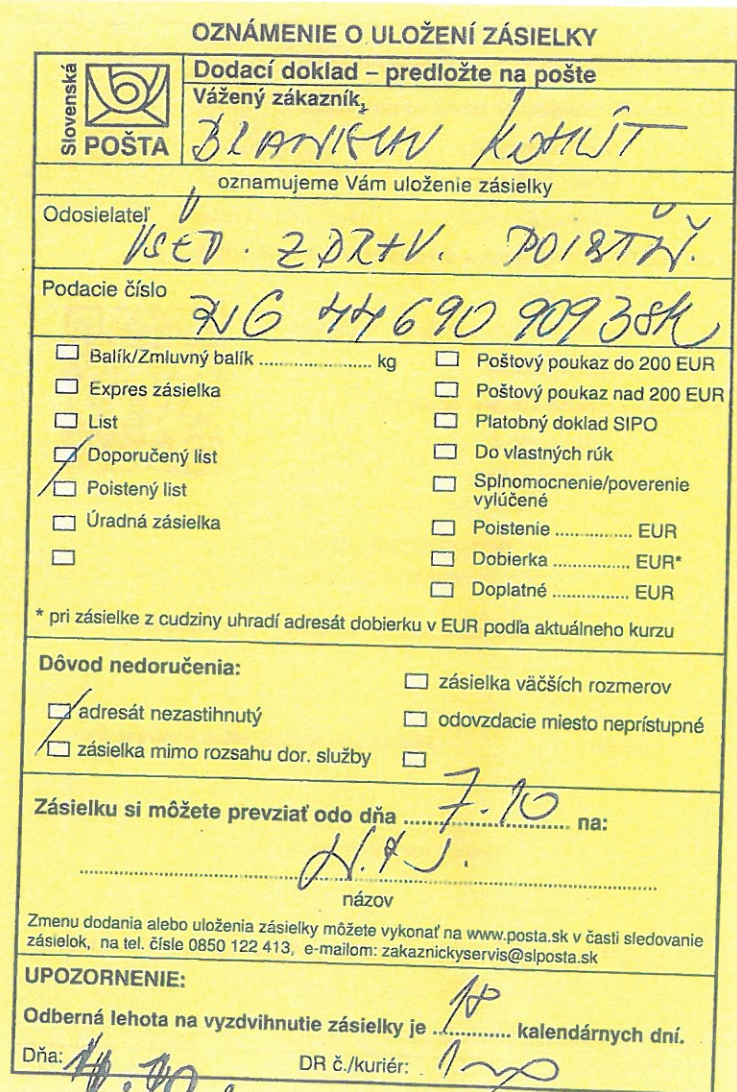 OZNÁMENIE O ULOŽENÍ ZÁSIELKY
Slovenská
POŠTA
Dodací doklad – predložte na pošte
Vážený zákazník,
KOHÚT
oznamujeme Vám uloženie zásielky
Odosielateľ
VŠEO. ZDRAV. POISŤ.
Podacie číslo
44690 9093SK
Balík/Zmluvný balík ...................... kg
Expres zásielka
List
Doporučený list
Poistený list
Úradná zásielka
Poštový poukaz do 200 EUR
Poštový poukaz nad 200 EUR
Platobný doklad SIPO
Do vlastných rúk
Splnomocnenie/poverenie
vylúčené
Poistenie ............... EUR
Dobierka ............... EUR*
Doplatné ............... EUR
* pri zásielke z cudziny uhradí adresát dobierku v EUR podľa aktuálneho kurzu
Dôvod nedoručenia:
adresát nezastihnutý
zásielka mimo rozsahu dor. služby
zásielka väčších rozmerov
odovzdacie miesto neprístupné
Zásielku si môžete prevziať odo dňa 7.10 na:
názov
Zmenu dodania alebo uloženia zásielky môžete vykonať na www.posta.sk v časti sledovanie
zásielok, na tel. čísle 0850 122 413, e-mailom: zakaznickyservis@slposta.sk
UPOZORNENIE:
Odberná lehota na vyzdvihnutie zásielky je 18 kalendárnych dní.
Dňa:
DR č./kuriér: